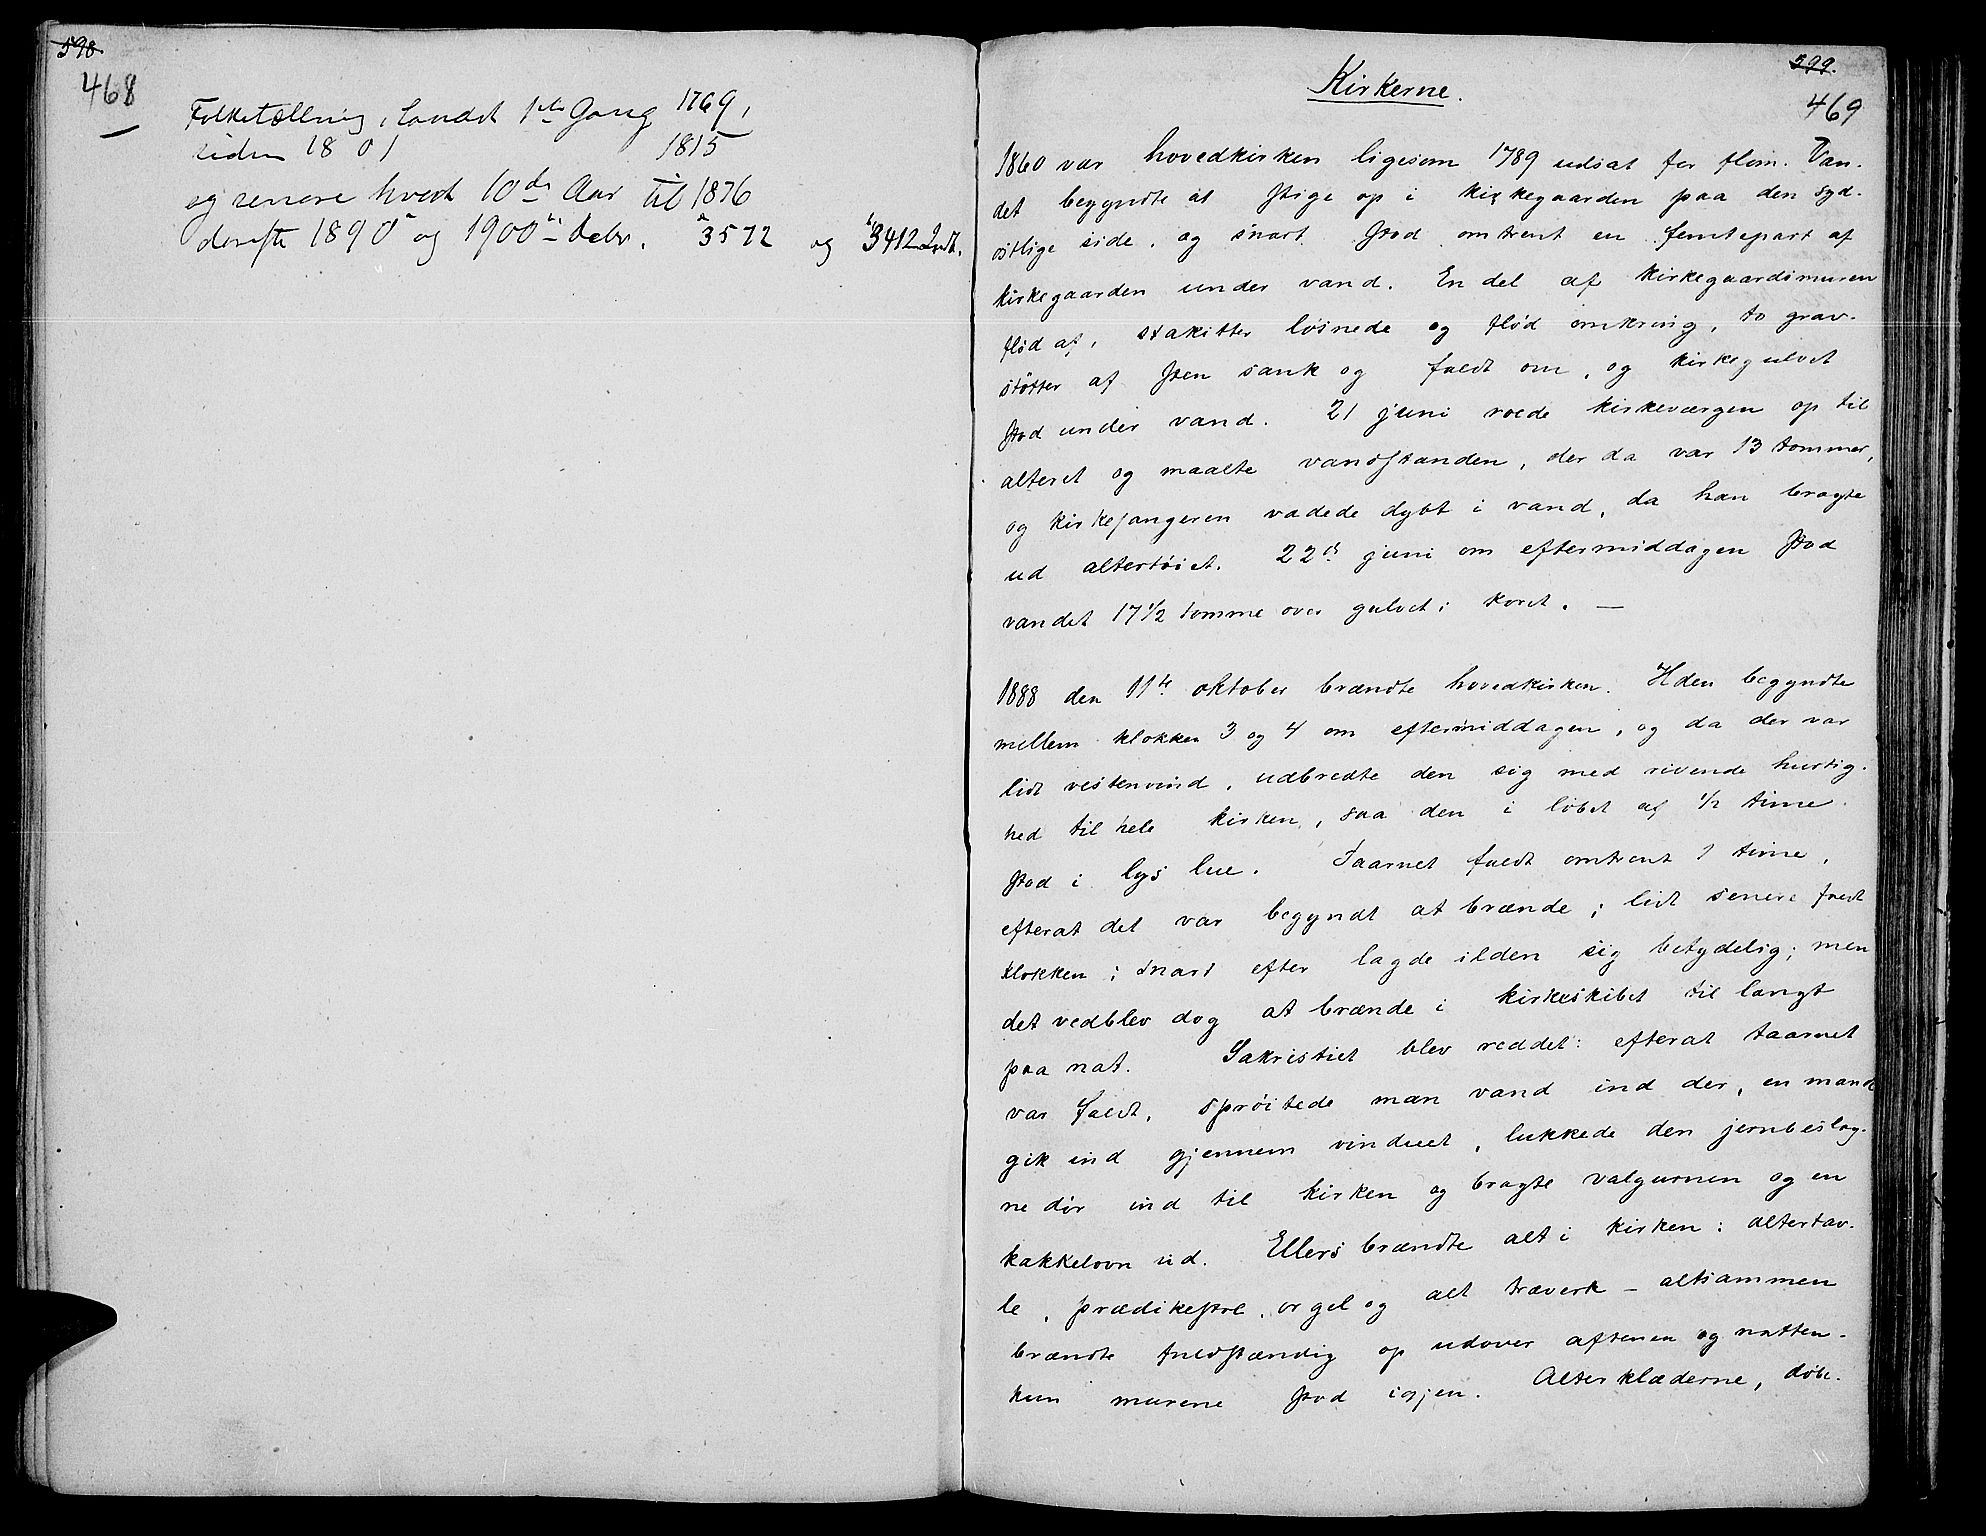 598.
468
Folketællning i Landet 1ste Gang 1769,
siden 1801 1815
og senere hvert 10de Aar til 1876
derefter 1890 og 1900 3572 og 3412 Indb.
599.
469
Kirkerne.
1860 var hovedkirken ligesom 1789 udsat for flom. Van-
det begyndte at stige op i kirkegaarden paa den syd-
østlige side, og snart stod omtrent en femtepart af
kirkegaarden under vand. En del af kirkegaardsmuren
flød af, stakitter løsnede og flød omkring, to grav-
støtter af sten sank og faldt om, og kirkegulvet
stod under vand. 21 juni roede kirkeværgen op til
alteret og maalte vandstanden, der da var 13 tommer,
og kirkesangeren vadede dybt i vand, da han bragte
ud altertøiet. 22d juni om eftermiddagen stod
vandet 17 1/2 tomme over gulvet i koret. —
1888 den 11te oktober brændte hovedkirken. Ilden begyndte
mellem klokken 3 og 4 om eftermiddagen, og da der var
lidt vestenvind, udbredte den sig med rivende hurtig-
hed til hele kirken, saa den i løbet af 1/2 time
stod i lys lue. Taarnet faldt omtrent 1 time,
efterat det var begyndt at brænde; lidt senere faldt
klokken; snart efter lagde ilden sig betydelig; men
det vedblev dog at brænde i kirkeskibet til langt
paa nat. Sakristiet blev reddet: efterat taarnet
var faldt, sprøitede man vand ind der, en mand
gik ind gjennem vinduet, lukkede den jernbeslag-
ne dør ind til kirken og bragte valgurnen og en
kakkelovn ud. Ellers brændte alt i kirken: altertav-
le, prædikestol, orgel og alt træverk – altsammen
brændte fuldstændig op udover aftenen og natten.
kun murene stod igjen. Alterklæderne, døbe-